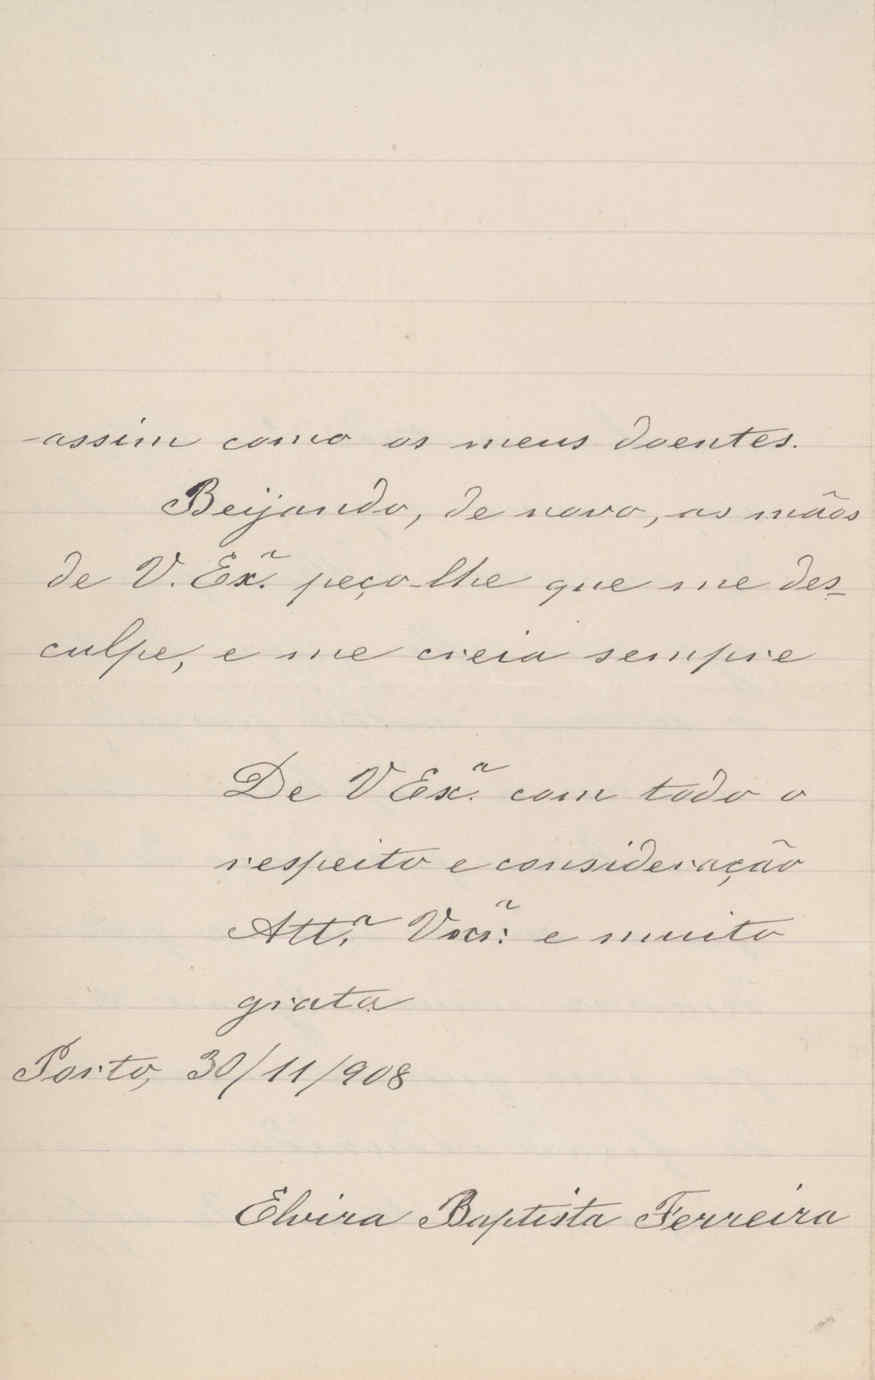 assim como os meus doentes.
Beijando, de novo, as mãos
de V. Exª. peço-lhe que me des-
culpe, e me creia sempre
De V Exª. com todo o
respeito e consideração
Attª. e muito
grata
Porto, 30/11/908
Elvira Baptista Ferreira